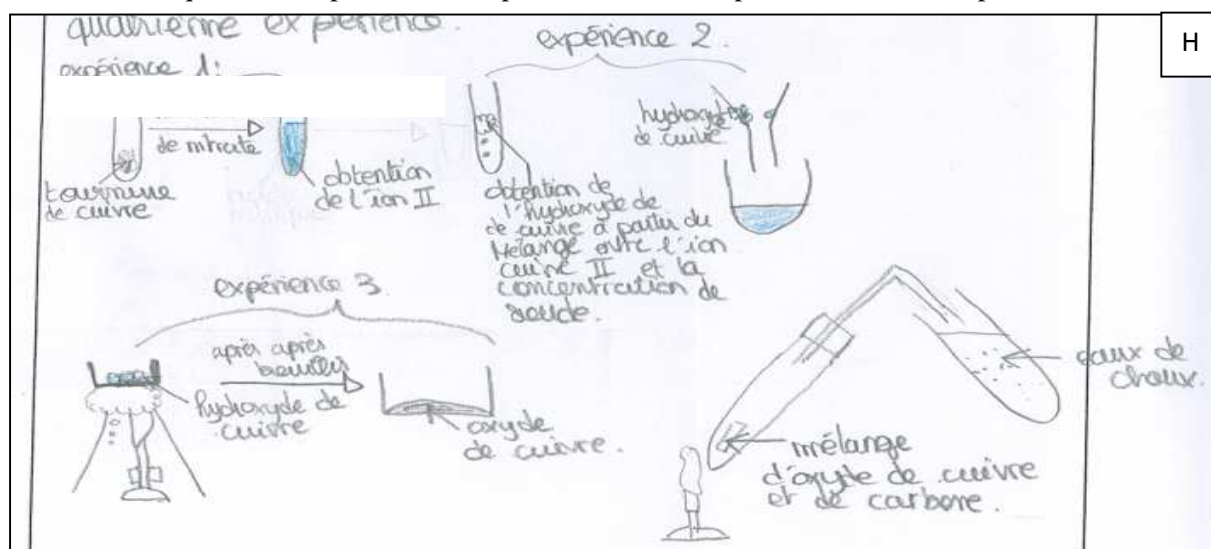 quatrième expérience.
expérience 1:
de nitrate
tournure
de cuivre
obtention
de l'ion II
expérience 2.
hydroxyde
de cuivre
obtention de
l'hydroxyde de
de cuivre à partir du
Mélange entre l'ion
cuivre II et la
concentration de
soude.
expérience 3
après après
hydroxyde de
cuivre
oxyde
de cuivre.
eaux de
chaux.
mélange
d'oxyte de cuivre
et de carbone.
H